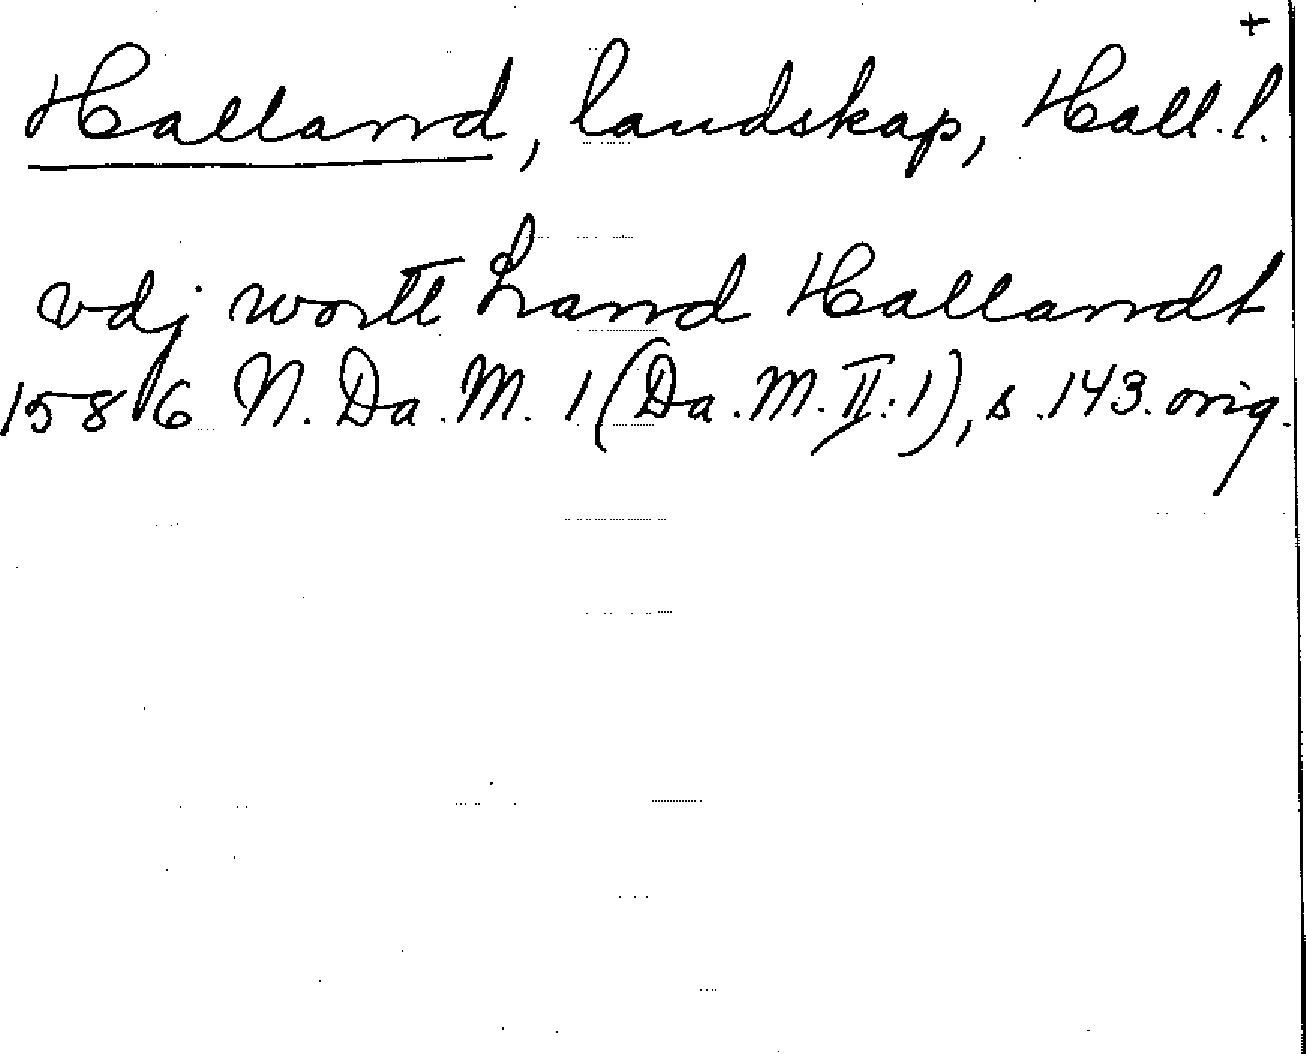 +
Halland, landskap, Hall. l.
vdj wortt Land Hallandt
1586 N. Da. M. 1 (Da. M. II: 1), s. 143. orig.